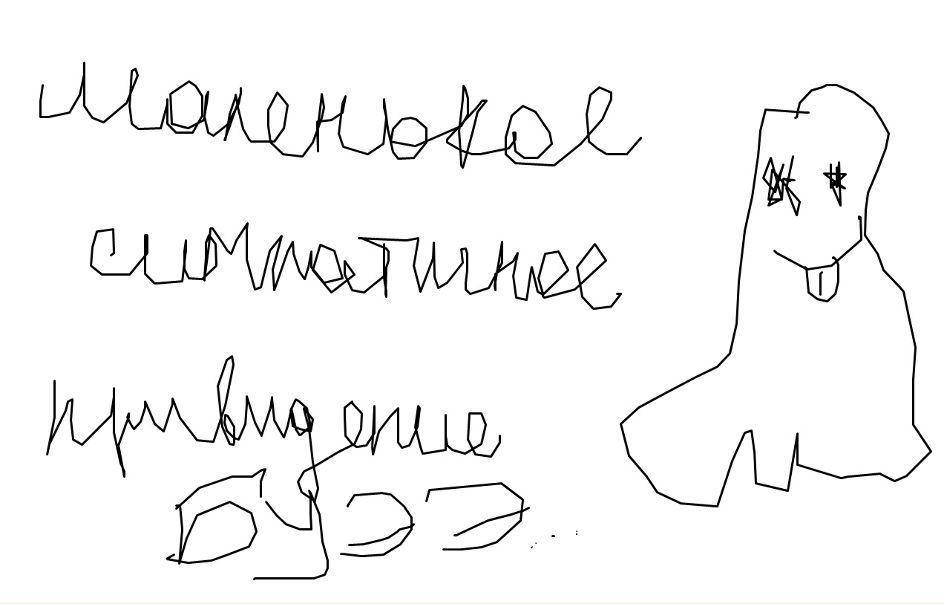 маленькое
симпатичное
привидение
БУЭЭ...